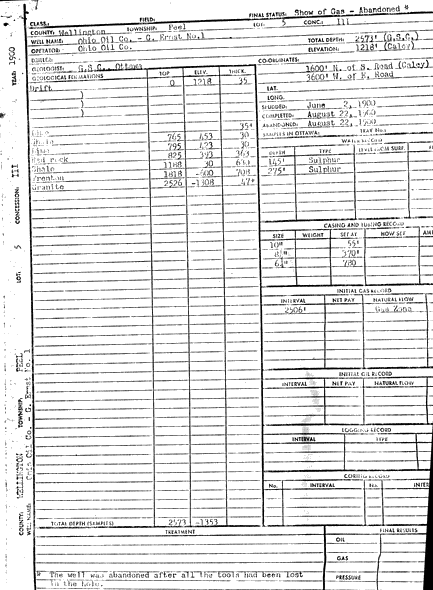 CLASS.: FIELD: FINAL STATUS: Show of Gas - Abandoned *
COUNTY: Wellington TOWNSHIP: Peel LOT: 5 CONC.: III
WELL NAME: Ohio Oil Co. - G. Ernst No.1
OPERATOR: Ohio Oil Co.
TOTAL DEPTH: 2573' (G.S.C.)
ELEVATION: 1218' (Caley)
G.S.C., Ottawa
CO-ORDINATES:
1600' N. of S. Road (Caley)
3600' W. of E. Road
GEOLOGICAL FORMATIONS TOP ELEV. THICK.
Drift 0 1218 35
)
)
)
35'
Lime 765 453 30
Shale 795 423 30
Lime 825 393 363
Red rock 1188 30 630
Shale 1818 -600 708
Trenton
Granite 2526 -1308 47'
TOTAL DEPTH (SAMPLES) 2573 -1353
LAT.
LONG.
SPUDDED: June 2, 1900
COMPLETED: August 22, 1900
ABANDONED: August 22, 1900
SAMPLES IN OTTAWA: TRAY No.:
WATER RECORD
DEPTH TYPE
145' Sulphur
275' Sulphur
CASING AND TUBING RECORD
SIZE WEIGHT SET AT HOW SET
10" 55'
370'
780
INITIAL GAS RECORD
INTERVAL NET PAY NATURAL FLOW
2506' Gas Zone
INITIAL OIL RECORD
INTERVAL NET PAY NATURAL FLOW
LOGGING RECORD
INTERVAL TYPE
CORING RECORD
No. INTERVAL No. INTER
TREATMENT FINAL RESULTS
OIL
GAS
PRESSURE
* The well was abandoned after all the tools had been lost
in the hole.
COUNTY: WELLINGTON TOWNSHIP: PEEL LOT: 5 CONCESSION: III YEAR: 1900
WELL NAME: Ohio Oil Co. - G. Ernst No. 1